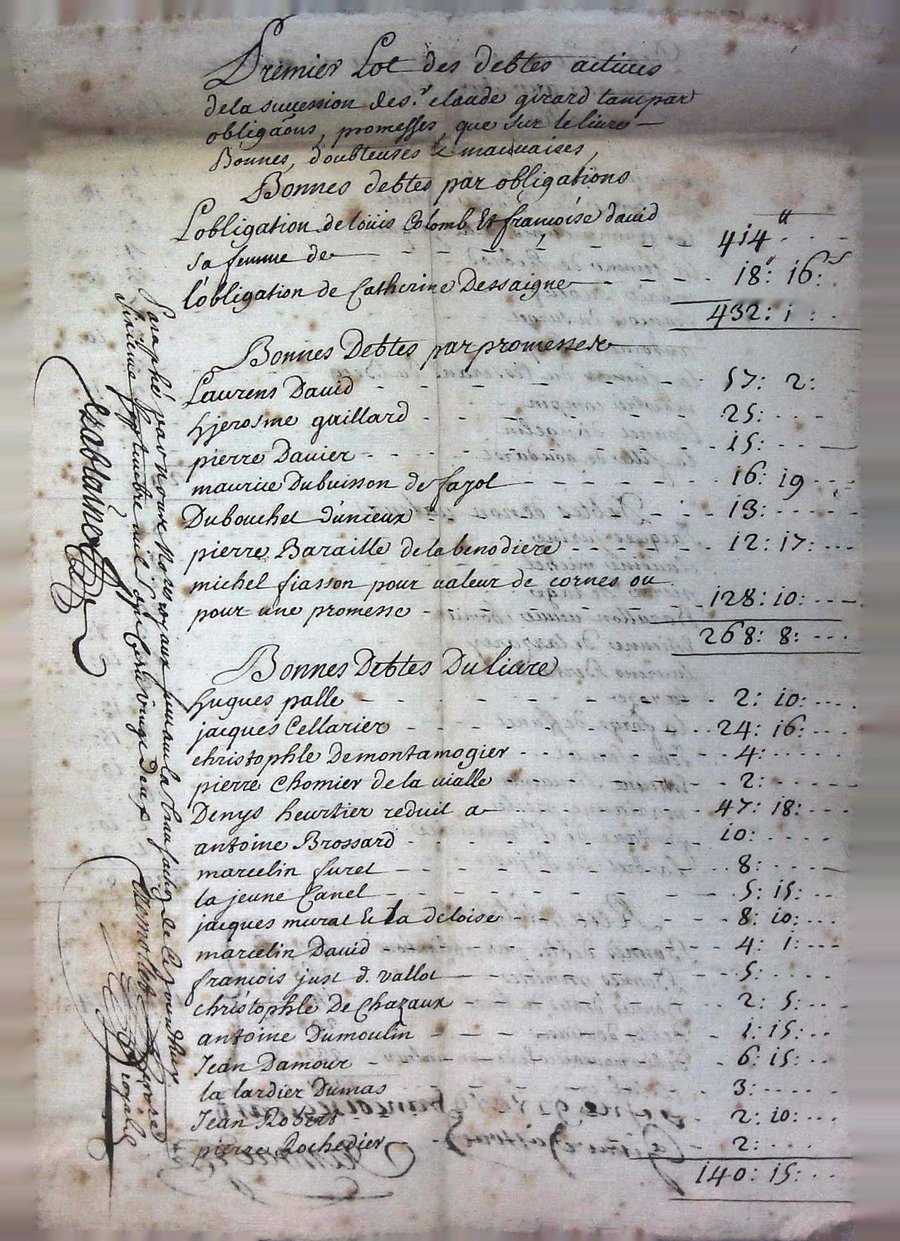 Premier Lot des debtes actives
de la succession de s.r claude girard tant par
obligaõns, promesses, que sur le livre
Bonnes, doubteuses & mauvaises,
Bonnes debtes par obligations
L'obligation de louis Colomb Et françoise david
sa femme de 414 ʰ
l'obligation de Catherine Dessaigne 18: 16: s
432: 1
Bonnes Debtes par promesses
Laurens David 57: 2:
hjerosme gaillard 25:
pierre Davier 15:
maurice Dubuisson de fayol 16: 19
Dubouchet d'unieux 13:
pierre Baraille de la benodiere 12: 17:
michel fiasson pour valeur de cornes ou
pour une promesse 128: 10:
268: 8:
Bonnes Debtes Du livre
hugues palle 2: 10:
jacques Cellarier 24: 16:
christophle Demontamogier 4:
pierre Chomier de la vialle 2:
Denys heurtier reduit a 47: 18:
antoine Brossard 10:
marcelin furet 8:
la jeune Canel 5: 15:
jacques murat & la deloise 8: 10:
marcelin David 4: 1:
francois just d. vallot 5:
christophle De Chazaux 2: 5:
antoine Dumoulin 1: 15:
Jean Damour 6: 15:
la lardier Dumas 3:
Jean Robert 2: 10:
pierre Rochedier 2:
140: 15:
Paraphé par nous
septembre mil sept cent vingt deux